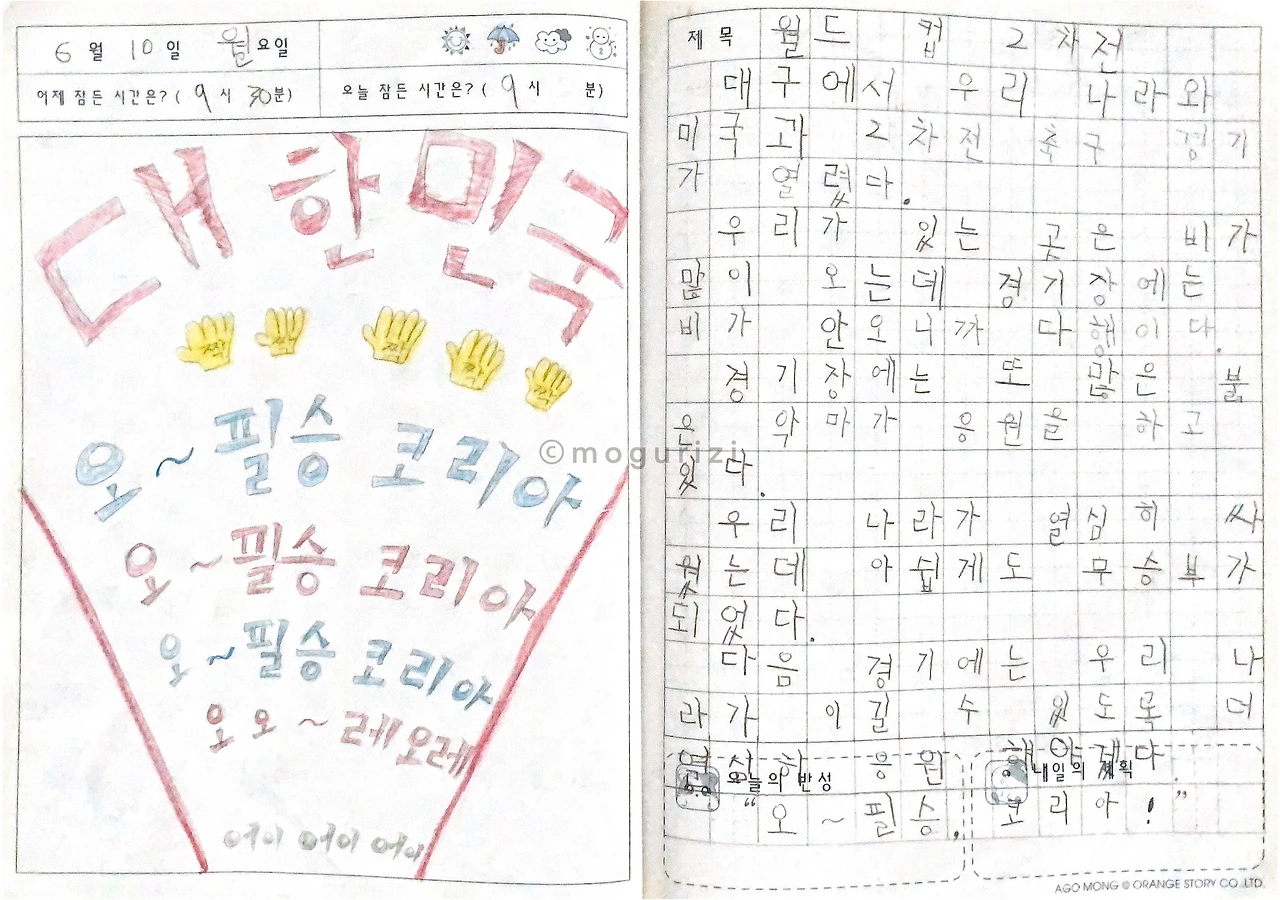 6월 10일 월요일
어제 잠든 시간은? ( 9시 30분)
오늘 잠든 시간은? ( 9시 분)
대한민국
짝 짝 짝 짝 짝
오~필승 코리아
오~필승 코리아
오~필승 코리아
오오~레오레
어이 어이 어이
제목 월드 컵 2차전
대구에서 우리 나라와
미국과 2차전 축구 경기
가 열렸다.
우리가 있는 곳은 비가
많이 오는데 경기장에는
비가 안오니까 다행이다.
경기장에는 또 많은 붉
은 악마가 응원을 하고
있다.
우리 나라가 열심히 싸
웠는데 아쉽게도 무승부가
되었다.
다음 경기에는 우리 나
라가 이길 수 있도록 더
열심히 응원 해야겠다
오늘의 반성
내일의 계획
“오~필승, 코리아!”
©mogurizi
AGO MONG © ORANGE STORY CO.,LTD.